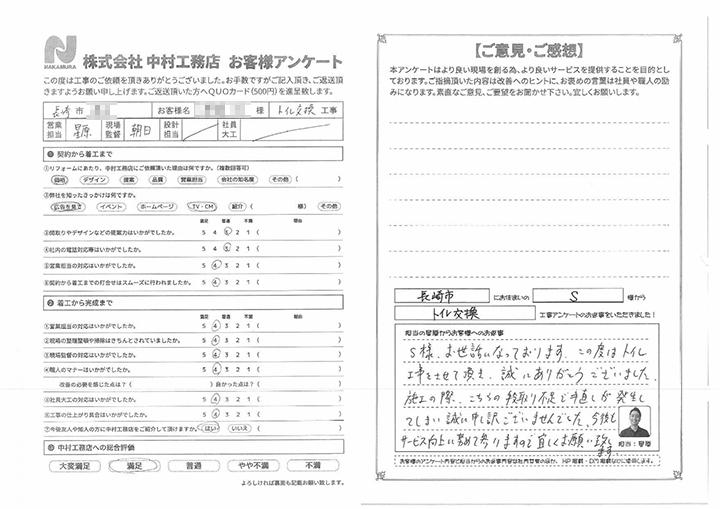 NAKAMURA
株式会社 中村工務店 お客様アンケート
この度は工事のご依頼を頂きありがとうございました。お手数ですがご記入頂き、ご返送頂
きますようお願い申し上げます。ご返送頂いた方へQUOカード(500円)を進呈致します。
長崎 市 お客様名 様 トイレ交換 工事
営業担当 星原 現場監督 朝日 設計担当 社員大工
❶ 契約から着工まで
①リフォームにあたり、中村工務店にご依頼頂いた理由は何ですか。(複数回答可)
価格 デザイン 提案 品質 営業担当 会社の知名度 その他 ( )
②弊社を知ったきっかけは何ですか。
広告を見て イベント ホームページ TV・CM 紹介 ( 様) その他
満足 普通 不満 理由
③間取りやデザインなどの提案力はいかがでしたか。 5 4 3 2 1 ( )
④社内の電話対応等はいかがでしたか。 5 4 3 2 1 ( )
⑤営業担当の対応はいかがでしたか。 5 4 3 2 1 ( )
⑥契約から着工までの打合せはスムーズに行われました。 5 4 3 2 1 ( )
❷ 着工から完成まで
満足 普通 不満 理由
①営業担当の対応はいかがでしたか。 5 4 3 2 1 ( )
②現場の整理整頓や掃除はきちんとされていましたか。 5 4 3 2 1 ( )
③現場監督の対応はいかがでしたか。 5 4 3 2 1 ( )
④職人のマナーはいかがでしたか。 5 4 3 2 1 ( )
改善の必要を感じた点は?( ) 良かった点は?( )
⑤社員大工の対応はいかがでしたか。 5 4 3 2 1 ( )
⑥工事の仕上がり具合はいかがでしたか。 5 4 3 2 1 ( )
⑦今後友人や知人の方に中村工務店をご紹介して頂けますか。 はい いいえ ( )
❸ 中村工務店への総合評価
大変満足 満足 普通 やや不満 不満
よろしければ裏面も記載お願い致します。
【ご意見・ご感想】
本アンケートはより良い現場を創る為、より良いサービスを提供することを目的とし
ております。ご指摘頂いた内容は改善へのヒントに、お褒めの言葉は社員や職人の励
みになります。素直なご意見、ご要望をお聞かせ下さい。宜しくお願いします。
長崎市 にお住まいの S 様から
トイレ交換 工事アンケートのお返事をいただきました!
担当の星原からお客様へのお返事
S様、お世話になっております。この度はトイレ
工事をさせて頂き、誠にありがとうございました。
施工の際、こちらの段取り不足で手直しが発生し
てしまい誠に申し訳ございませんでした。今後も
サービス向上に努めて参りますので宜しくお願い致し
ます。
担当:星原